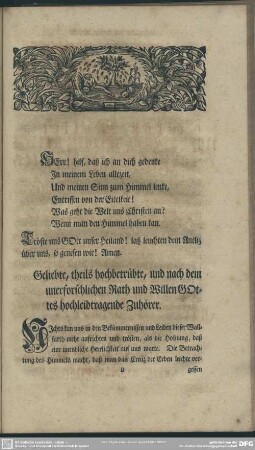 HErr! hilf, daß ich an dich gedenke
In meinem Leben allezeit,
Und meinen Sinn zum Himmel lenke,
Entrissen von der Eitelkeit!
Was geht die Welt uns Christen an?
Wenn man den Himmel haben kan.
Tröste uns GOtt unser Heiland! laß leuchten dein Antlitz
über uns, so genesen wir! Amen.
Geliebte, theils hochbetrübte, und nach dem
unerforschlichen Rath und Willen GOt-
tes hochleidtragende Zuhörer.
Nichts kan uns in den Bekümmernissen und Leiden dieser Wall-
farth mehr aufrichten und trösten, als die Hofnung, daß
eine unendliche Herrlichkeit auf uns warte. Die Betrach-
tung des Himmels macht, daß man das Creutz der Erden leichte ver-
gessen